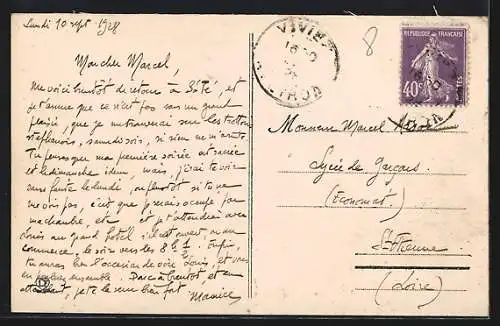 Lundi 10 sept 1928
Mon cher Marcel,
Me voici bientôt de retour à Sète, et
je t'avoue que ce n'est pas sans un grand
plaisir, que je me trouverai sur les trottoirs
samedi soir, si rien ne m'arrête.
Tu penses que ma première soirée est sacrée
et le dimanche idem, mais, j'irai te voir
sans faute le lundi, ou plutôt si tu ne
me vois pas, c'est que je serais occupé par
ma chambre, et je t'attendrai avec
Louis au grand hôtel
commerce, le soir vers les 8 h ½. Enfin,
tu auras l'occasion de voir Louis, et
ensemble. Donc à bientôt, et en
attendant, je te serre bien fort Maurice
VIVIE
8
RÉPUBLIQUE FRANÇAISE
40c
Monsieur Marcel
Lycée de Garçons
(Économat)
St-Etienne
(Loire)